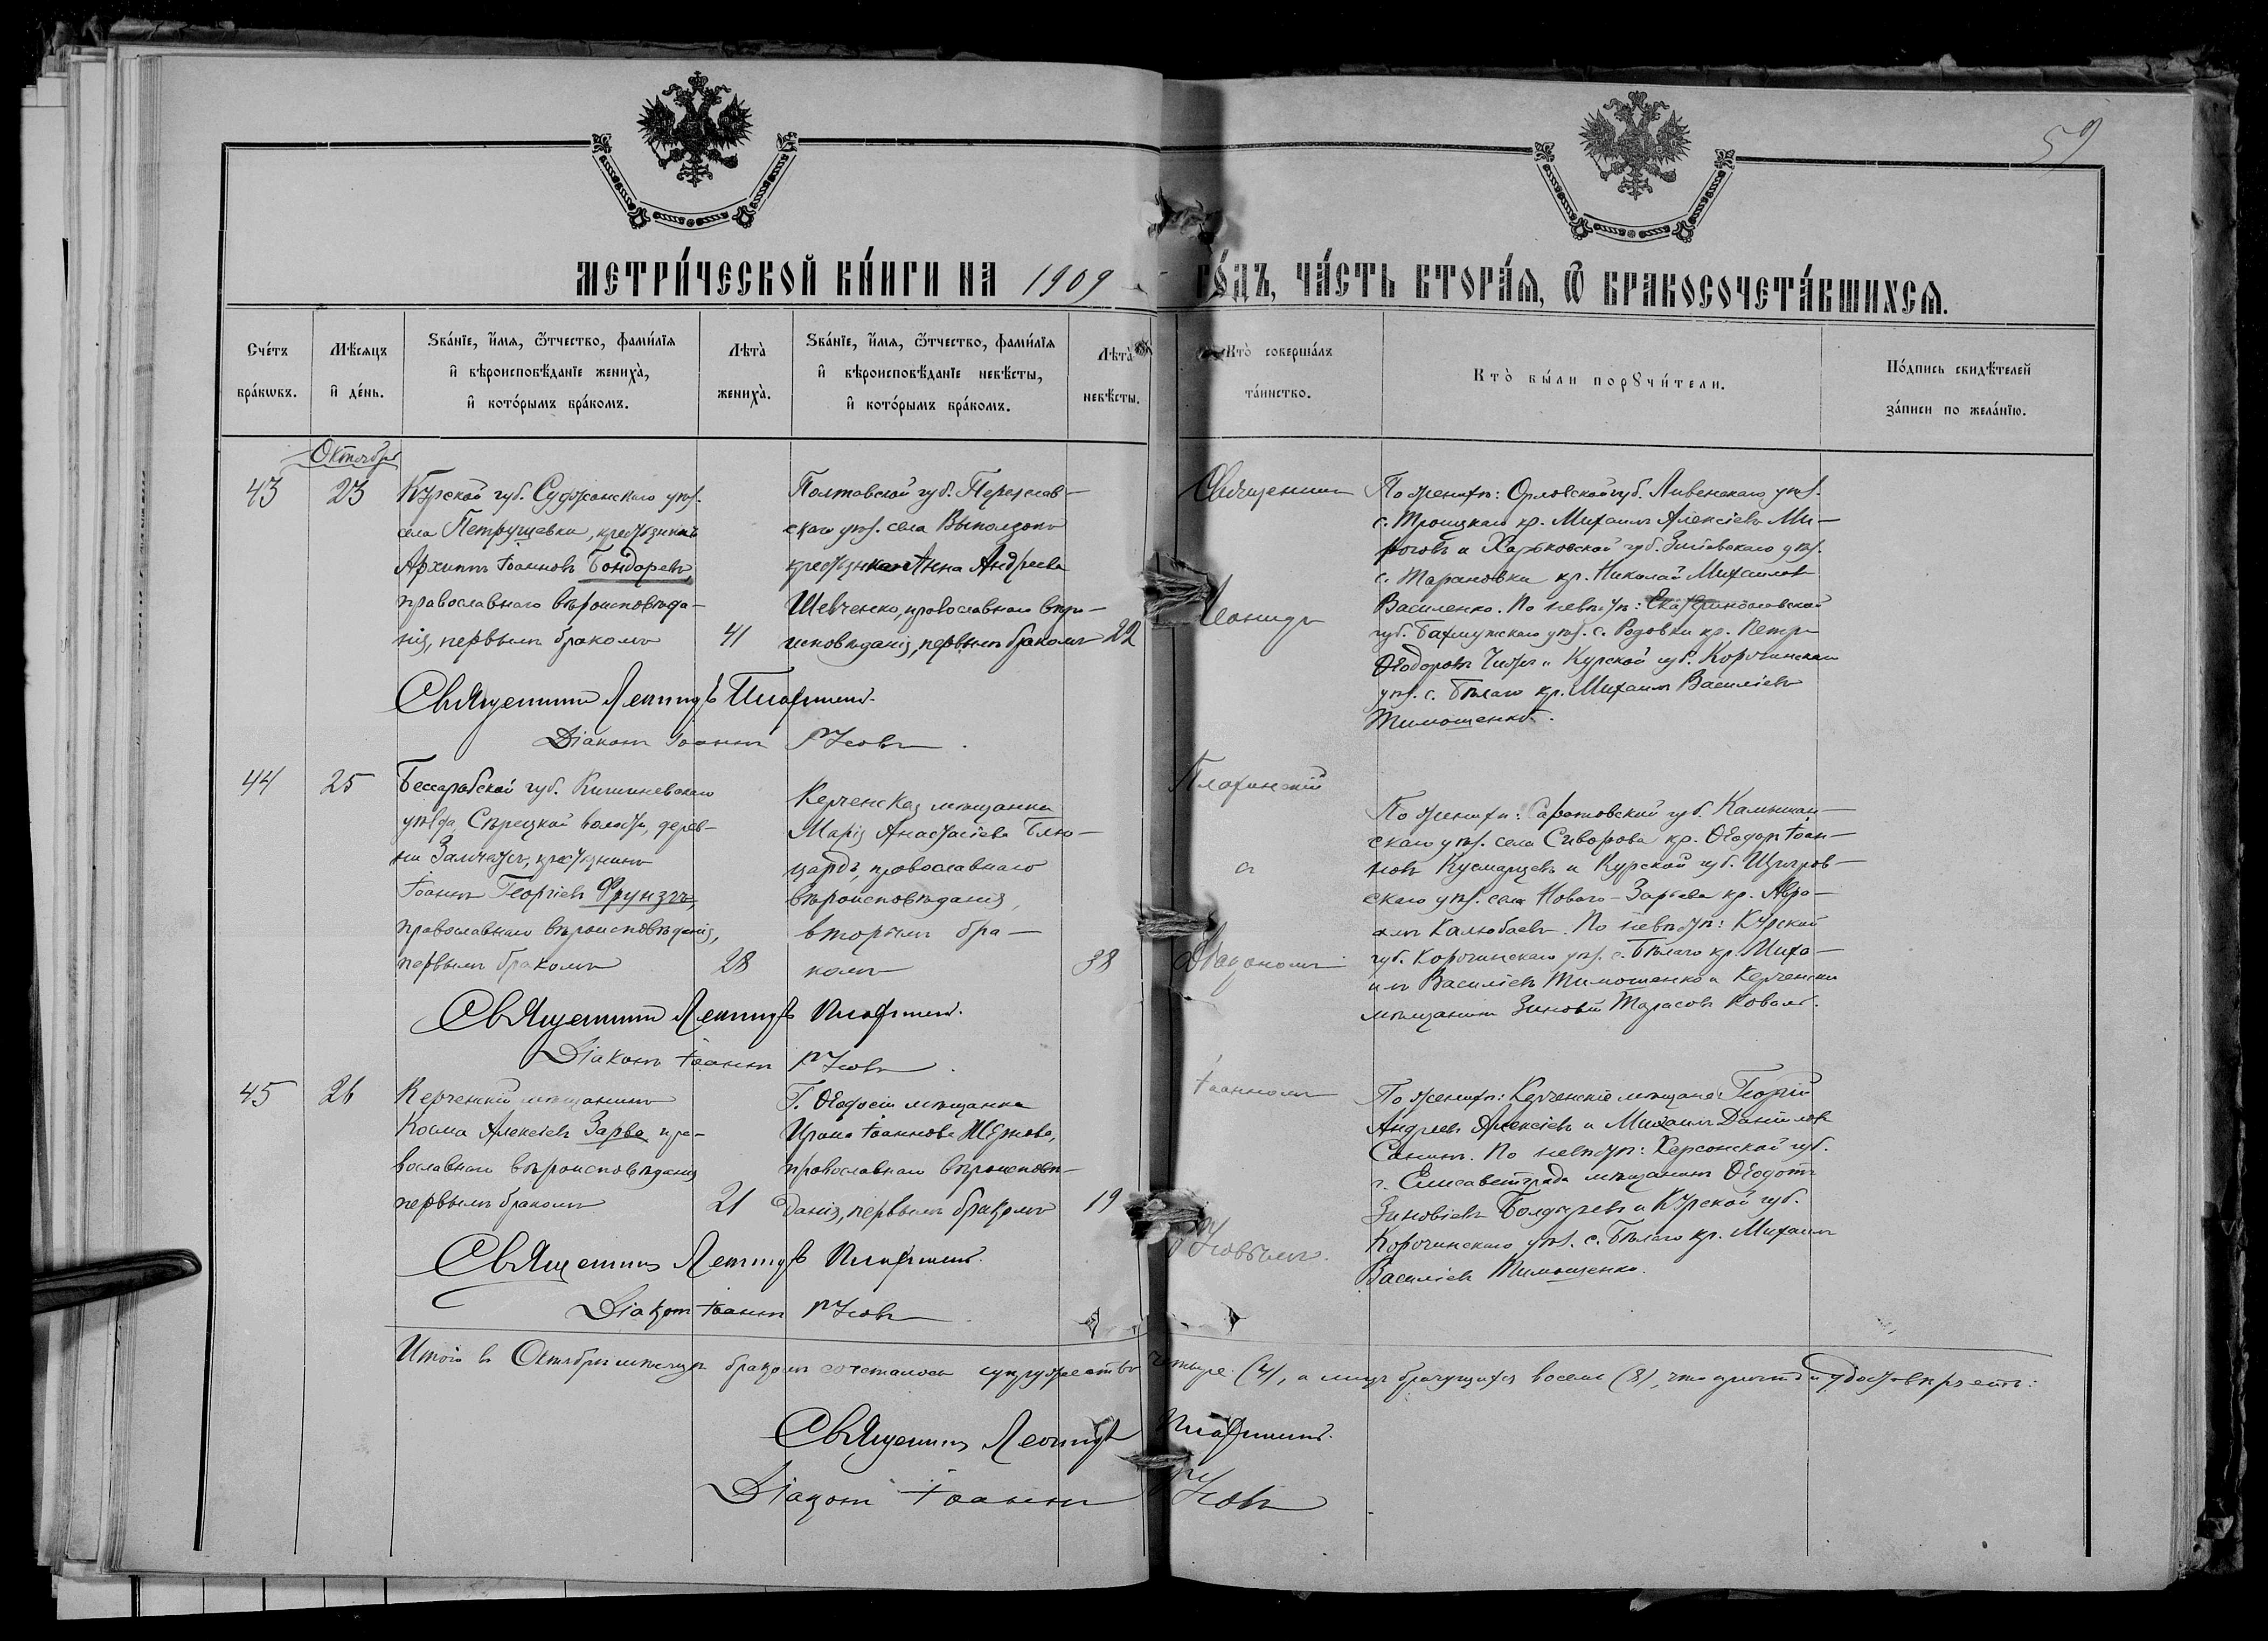 59
МЕТРИ́ЧЕСКОЙ КНИ́ГИ НА 1909 ГО́ДЪ, ЧА́СТЬ ВТОРА́Ѧ, Ѿ БРАКОСОЧЕТА́ВШИХСѦ.
Сче́тъ бра́кѡвъ.
Мѣ́сѧцъ и҆ де́нь.
Ѕва́нїе, и҆́мѧ, ѻ҆́тчество, фами́лїѧ
и҆ вѣроисповѣ́данїе жениха̀,
и҆ кото́рымъ бра́комъ.
Лѣта̀ жениха̀.
Ѕва́нїе, и҆́мѧ, ѻ҆́тчество, фами́лїѧ
и҆ вѣроисповѣ́данїе невѣ́сты,
и҆ кото́рымъ бра́комъ.
Лѣта̀ невѣ́сты.
Кто̀ соверша́лъ та́инство.
Кто̀ бы́ли порꙋчи́тели.
По́дпись свидѣ́телей
за́писи по жела́нїю.
Октябрь
43
23
Курской губ. Суджанскаго уѣз.
села Петрушевки, крестьянинъ
Архипъ Іоанновъ Бондаревъ,
православнаго вѣроисповѣда-
нія, первымъ бракомъ
41
Полтавской губ. Переяслав-
скаго уѣз. села Выползокъ
крестьянка Анна Андреева
Шевченко, православнаго вѣро-
исповѣданія, первымъ бракомъ
22
Священникъ
Леонидъ
По женихѣ: Орловской губ. Ливенскаго уѣз.
с. Троицкаго кр. Михаилъ Алексіевъ Ми-
роговъ и Харьковской губ. Зміевскаго уѣз.
с. Тарановки кр. Николай Михаиловъ
Василенко. По невѣстѣ: Екатеринославской
губ. Бахмутскаго уѣз. с. Родовки кр. Петръ
Ѳеодоровъ и Курской губ. Корочанскаго
уѣз. с. Бѣлаго кр. Михаилъ Василіевъ
Тимошенко.
Священникъ Леонидъ
Діаконъ Іоаннъ Усовъ
44
25
Бессарабской губ. Кишиневскаго
уѣзда Сърецкой волости, дерев-
ни крестьянинъ
Іоаннъ Георгіевъ Фрунзъ,
православнаго вѣроисповѣданія,
первымъ бракомъ
28
Керченская мѣщанка
Марія Анастасіева Блю-
цардъ, православнаго
вѣроисповѣданія,
вторымъ бра-
комъ
38
и
Діакономъ
По женихѣ: Саратовской губ. Камышин-
скаго уѣз. села Сиворова кр. Ѳеодоръ Іоан-
новъ Кусмарцевъ и Курской губ. Щигров-
скаго уѣз. села Новаго-Зарѣева кр. Авра-
амъ Калюбаевъ. По невѣстѣ: Курской
губ. Корочинскаго уѣз. с. Бѣлаго кр. Миха-
илъ Василіевъ Тимошенко и Керченскій
мѣщанинъ Зиновій Тарасовъ Коваль.
Священникъ Леонидъ
Діаконъ Іоаннъ Усовъ
45
26
Керченскій мѣщанинъ
Косма Алексіевъ Зарва пра-
вославнаго вѣроисповѣданія
первымъ бракомъ
21
Г. Ѳеодосіи мѣщанка
Ирина Іоаннова Жернова,
православнаго вѣроисповѣ-
данія, первымъ бракомъ
19
Іоанномъ
Усовымъ.
По женихѣ: Керченскіе мѣщане: Георгій
Андреевъ Алексіевъ и Михаилъ Даніиловъ
Санинъ. По невѣстѣ: Херсонской губ.
г. Елисаветграда мѣщанинъ Ѳеодотъ
Зиновіевъ Болдыревъ и Курской губ.
Корочинскаго уѣз. с. Бѣлаго кр. Михаилъ
Василіевъ Тимошенко.
Священникъ Леонидъ
Діаконъ Іоаннъ Усовъ
Итого въ Октябрѣ мѣсяцѣ бракомъ сочеталось супружествъ четыре (4), а лицъ брачущихся восемь (8), что удостовѣряемъ:
Священникъ Леонидъ
Діаконъ Іоаннъ Усовъ